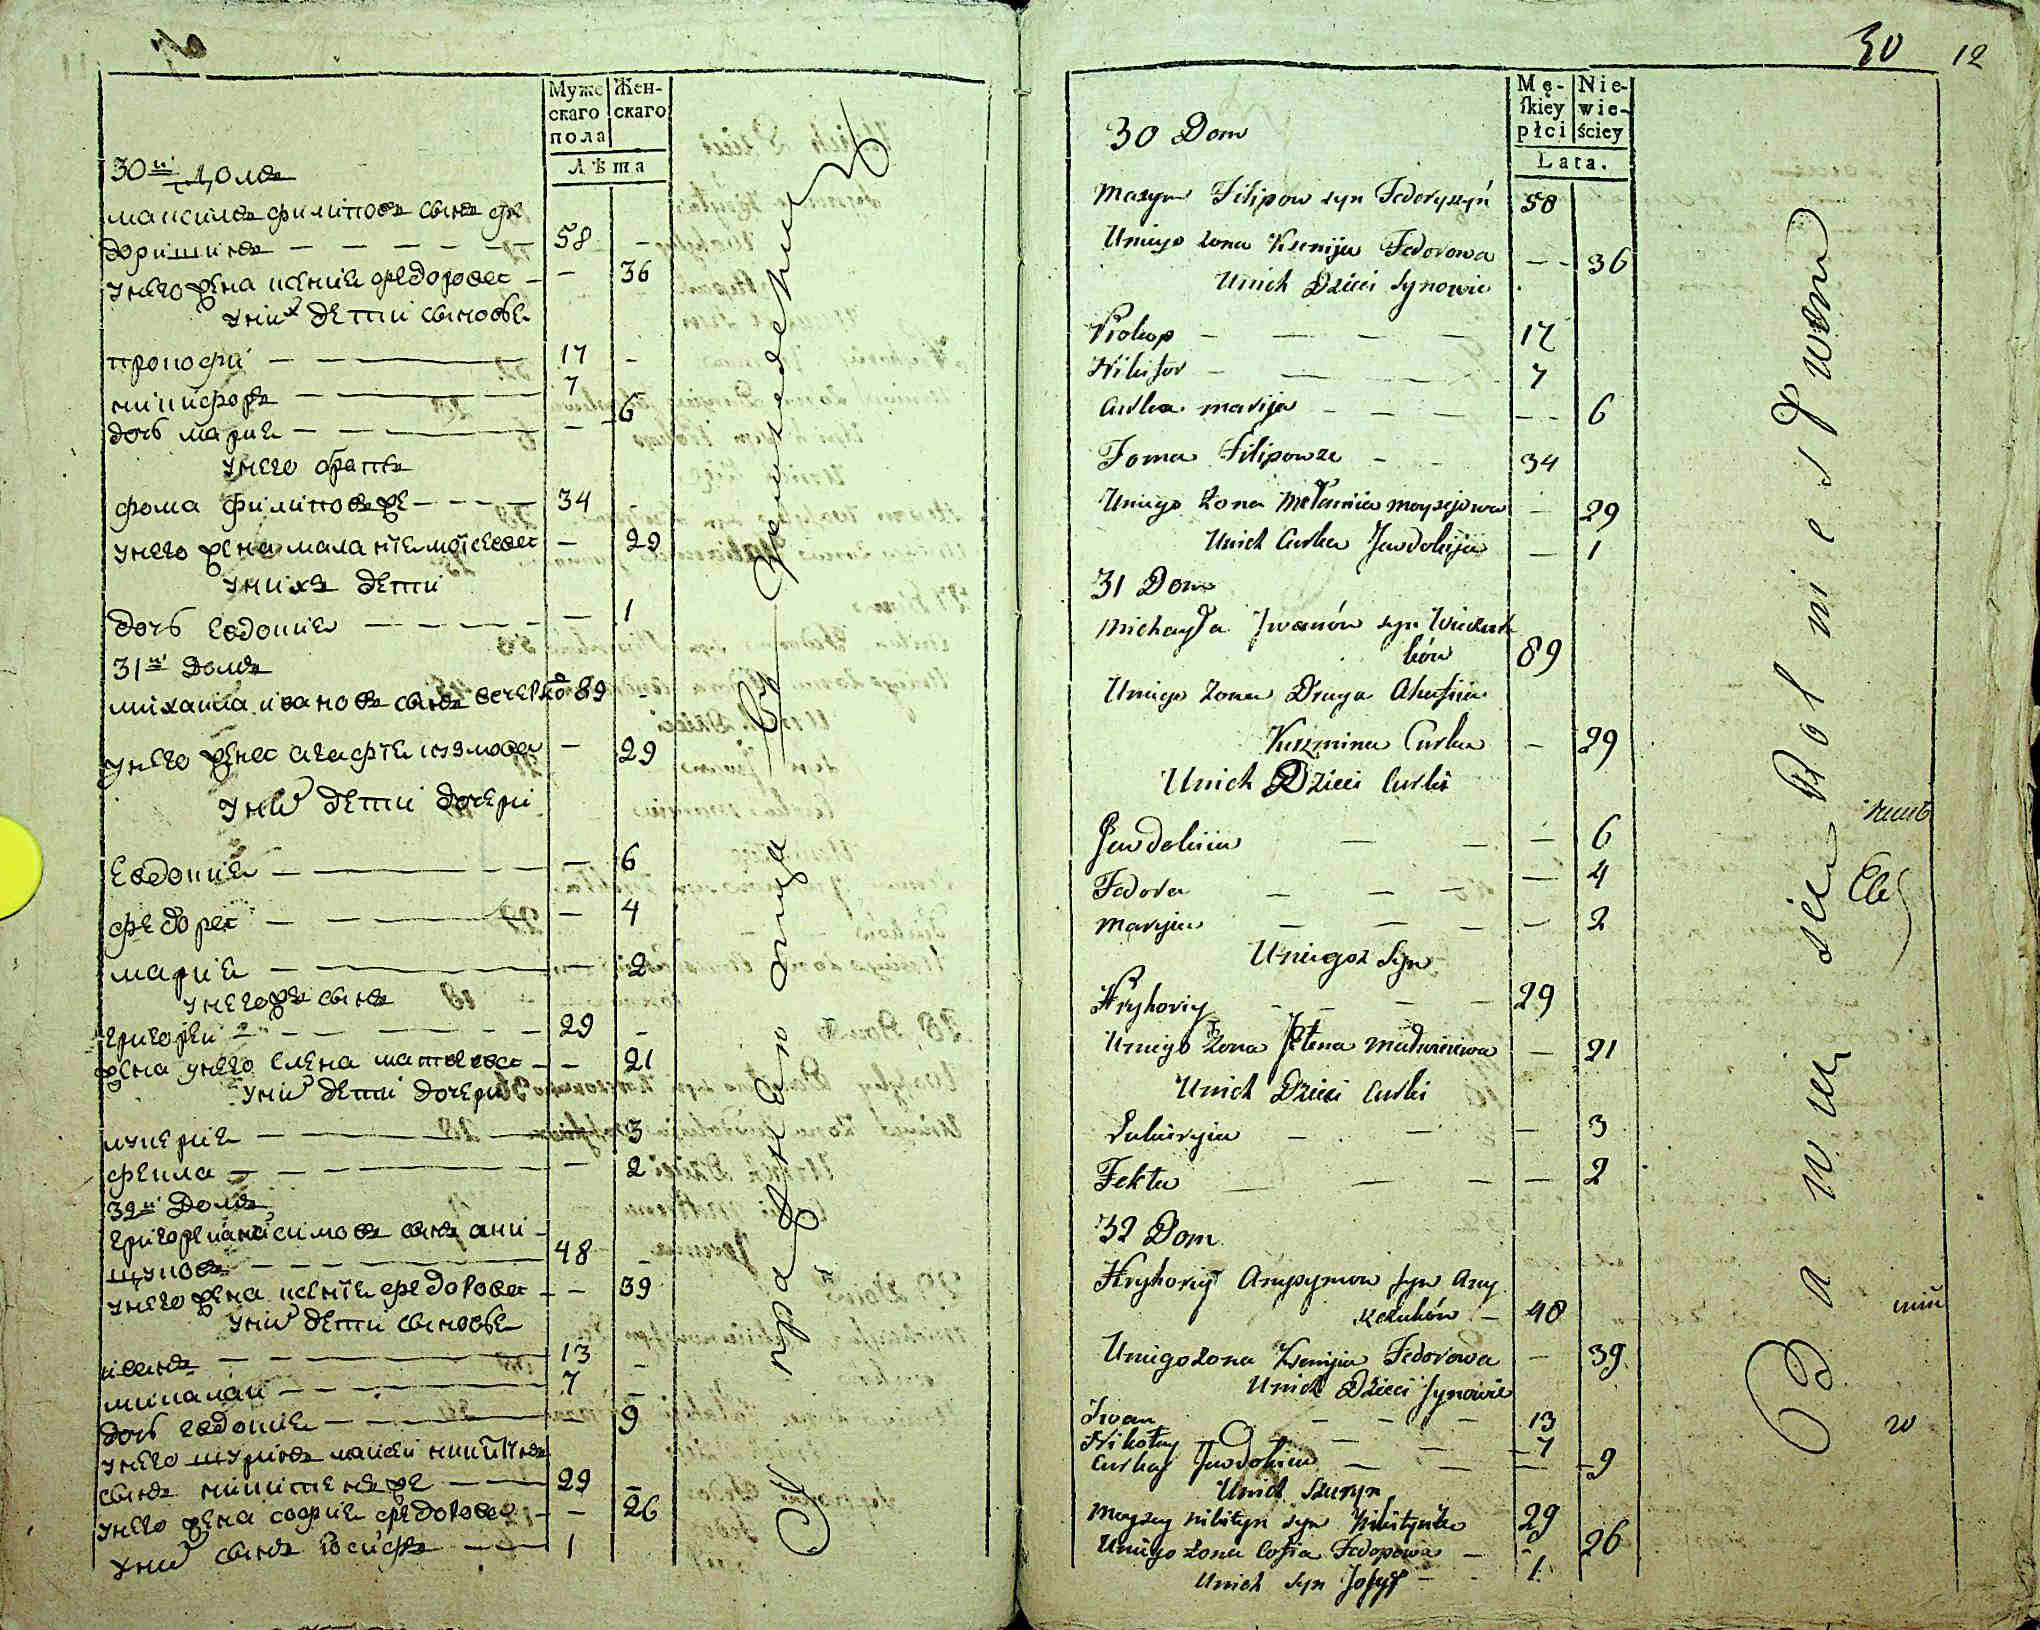 Муже
скаго
пола
Жен-
скаго
Лѣта
30й домъ
маѯимъ филиповъ сынъ фе
доришинъ — — — — — 58 -
у него жена ксения федорова - — 36
у них дети сыновье
прокофй — — — 17 -
никифоръ — — — 7
дочь мария — — — — 6
у него братъ
фома филиповъ же — — — 34
у него жена малания моисеева — 29
у нихъ дети
дочь евдокия — — — — 1
31й домъ
михаила ивановъ сынъ вечерко 89 -
у него жена агафия кузмова — 29
у них дети дочери
евдокия — — — — 6
федора — — — — 4
мария — — — — 2
у него же сынъ
григорей — — — 29 -
жена у него елена матвеева — — 21
у них дети дочери
лукерия — — — 3
фекла — — — — 2
32й домъ
григорей анисимовъ сынъ ани-
щуковъ — — — 48 -
у него жена ксения федорова — — 39
у них дети сыновье
иванъ — — — 13 -
миколай — — — 7 -
дочь евдокия — — — 9
у него шуринъ моисей никитинъ
сынъ никитенъ же — — 29 -
у него жена софия федорова — — 26
у них сынъ иосифъ — — 1
30 12
Mę-
skiey
płci
Nie-
wie-
ściey
Lata.
30 Dom
Maxym Filipow syn Fedoryszyń 58
Uniego żona Ksenija Fedorowa - - 36
Unich Dzieci synowie
Prokop - — — — 17
Nikifor - — — — 7
Curka marija — — — - - 6
Foma Filipow ze - - 34
Uniego żona Mełania moysejowa — 29
Unich Curka Jewdokija — 1
31 Dom
Michayła Jwanów syn Wieczer
ków 89
Uniego żona Druga Ahafija
Kuzmina Curka — 29
Unich Dzieci Curki
Jewdokiia — — — 6
Fedora — — — — 4
maryia — — — — 2
Uniegoż syn
Hryhoriy - — — — 29
Uniego żona Jełena matwieiewa — 21
Unich Dzieci Curki
Łukieryia — — — 3
Fekła — — — — 2
32 Dom
Hryhoriy Anysymow syn Any
szczuków — 48
Uniego żona Xeniia Fedorowa — 39
Unich Dzieci synowie
Jwan — — — 13
Nikołay — — — 7
Curka Jewdokiia — — — 9
Unich szuryn
Moysey nikityn syn Nikityńko 29
Uniego żona Sofia Fedorowa — - 26
Unich syn Josyf — - 1